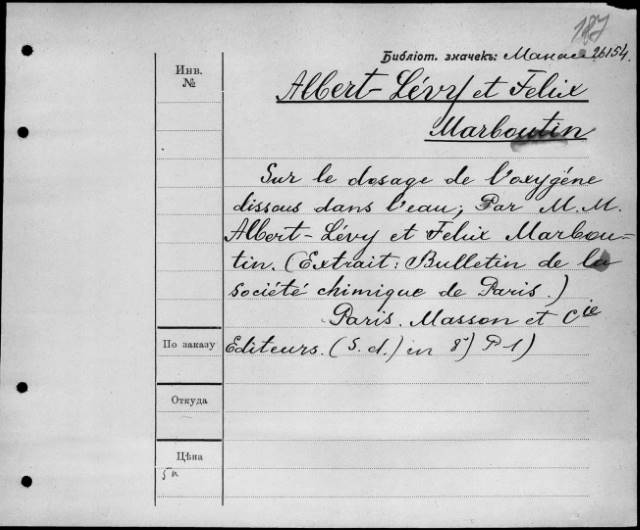 187
Библіот. значекъ: 26154.
Инв.
№
Albert-Lévy et Felix
Marboutin
Sur le dosage de l'oxygéne
dissous dans l'eau; Par M. M.
Albert-Lévy et Felix Marbou-
tin. (Extrait: Bulletin de la
société chimique de Paris.)
Paris. Masson et Cie
По заказу
Editeurs. (S. d.) in 8°)
Откуда
Цѣна